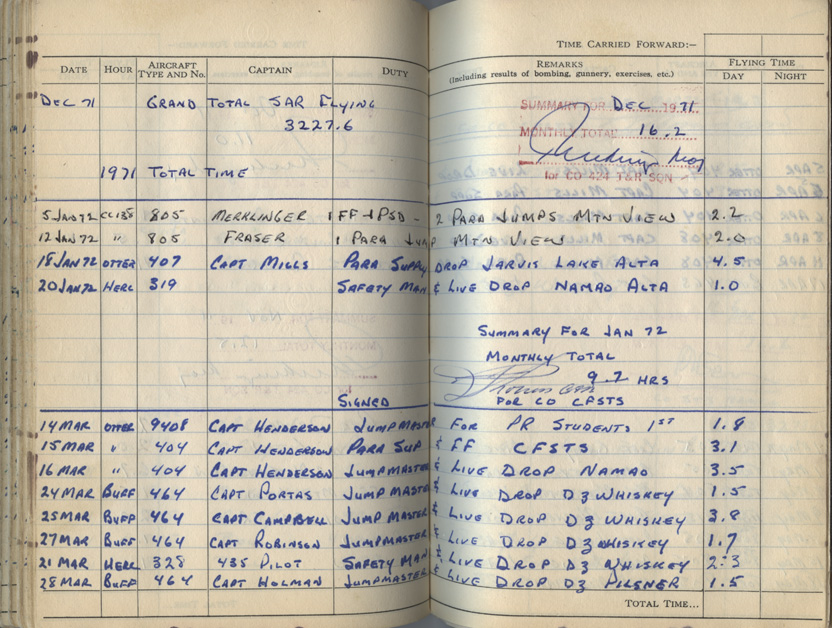 TIME CARRIED FORWARD:—
DATE HOUR AIRCRAFT TYPE AND No. CAPTAIN DUTY REMARKS (Including results of bombing, gunnery, exercises, etc.) FLYING TIME DAY NIGHT
DEC 71 GRAND TOTAL SAR FLYING
3227.6
SUMMARY FOR DEC 1971
MONTHLY TOTAL 16.2
1971 TOTAL TIME
for CO 424 T&R SQN
5 JAN 72 CC138 805 MERKLINGER 1 FF + PSD - 2 PARA JUMPS MTN VIEW 2.2
12 JAN 72 " 805 FRASER 1 PARA JUMP MTN VIEW 2.0
18 JAN 72 OTTER 407 CAPT MILLS PARA SUPPLY DROP JARVIS LAKE ALTA 4.5
20 JAN 72 HERC 319 SAFETY MAN & LIVE DROP NAMAO ALTA 1.0
SUMMARY FOR JAN 72
MONTHLY TOTAL
9.7 HRS
SIGNED FOR CO CFSTS
14 MAR OTTER 9408 CAPT HENDERSON JUMPMASTER FOR PR STUDENTS 1ST 1.8
15 MAR " 404 CAPT HENDERSON PARA SUP & FF CFSTS 3.1
16 MAR " 404 CAPT HENDERSON JUMPMASTER & LIVE DROP NAMAO 3.5
24 MAR BUFF 464 CAPT PORTAS JUMPMASTER & LIVE DROP DZ WHISKEY 1.5
25 MAR BUFF 464 CAPT CAMPBELL JUMPMASTER & LIVE DROP DZ WHISKEY 3.8
27 MAR BUFF 464 CAPT ROBINSON JUMPMASTER & LIVE DROP DZ WHISKEY 1.7
21 MAR HERC 328 435 PILOT SAFETY MAN & LIVE DROP DZ WHISKEY 2.3
28 MAR BUFF 464 CAPT HOLMAN JUMPMASTER & LIVE DROP DZ PILSNER 1.5
TOTAL TIME...